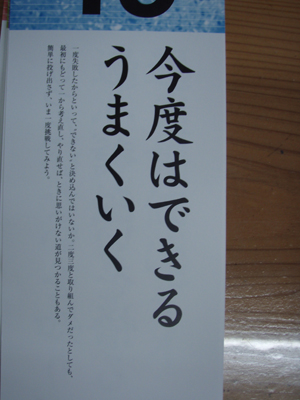 今度はできる
うまくいく
一度失敗したからといって、“できない”と決め込んではいないか。二度三度と取り組んでダメだったとしても、
最初にもどって一から考え直し、やり直せば、ときに思いがけない道が見つかることもある。
簡単に投げ出さず、いま一度挑戦してみよう。